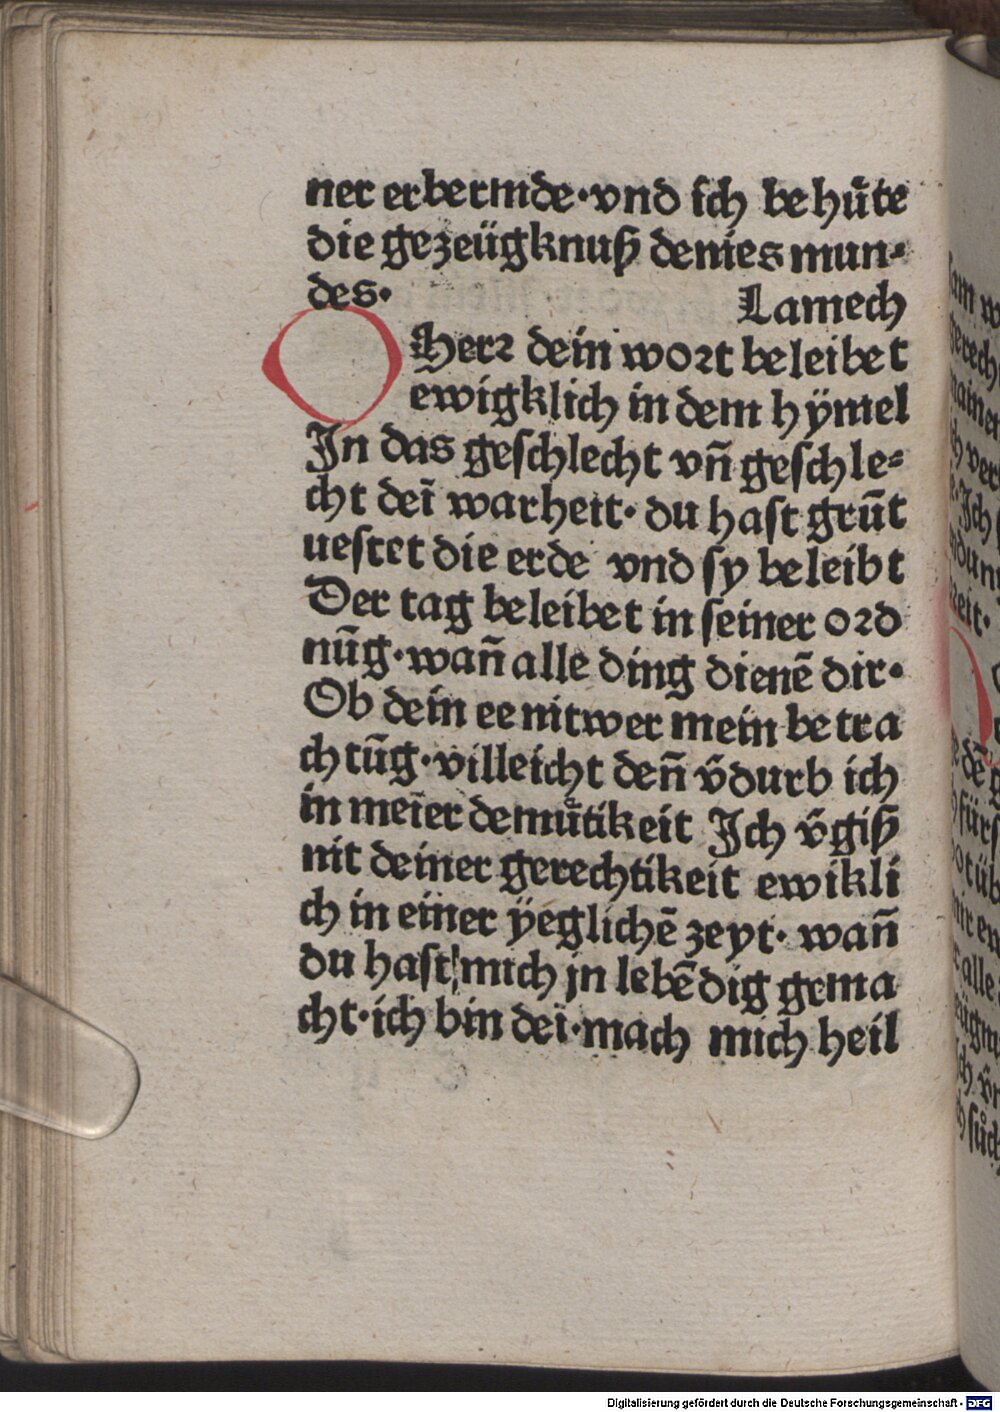 ner erbermde·vnd ich behuͤte
die gezeügknuß denies mun⸗
des· Lamech
O Herꝛ dein woꝛt beleibet
ewigklich in dem hÿmel
In das geschlecht vn̄ geschle⸗
cht deī warheit· du hast grūt
uestet die erde vnd sy beleibt
Der tag beleibet in seiner oꝛd
nūg·wan̄ alle ding dienē dir·
Ob dein ee nit wer mein betra
chtūg·villeicht den̄ v̄durb ich
in meīer demuͤtikeit Ich v̄giß
nit deiner gerechtikeit ewikli
ch in einer ÿeglichē zeyt· wan̄
du hast mich jn lebēdig gema
cht·ich bin deī·mach mich heil
Digitalisierung gefördert durch die Deutsche Forschungsgemeinschaft - DFG